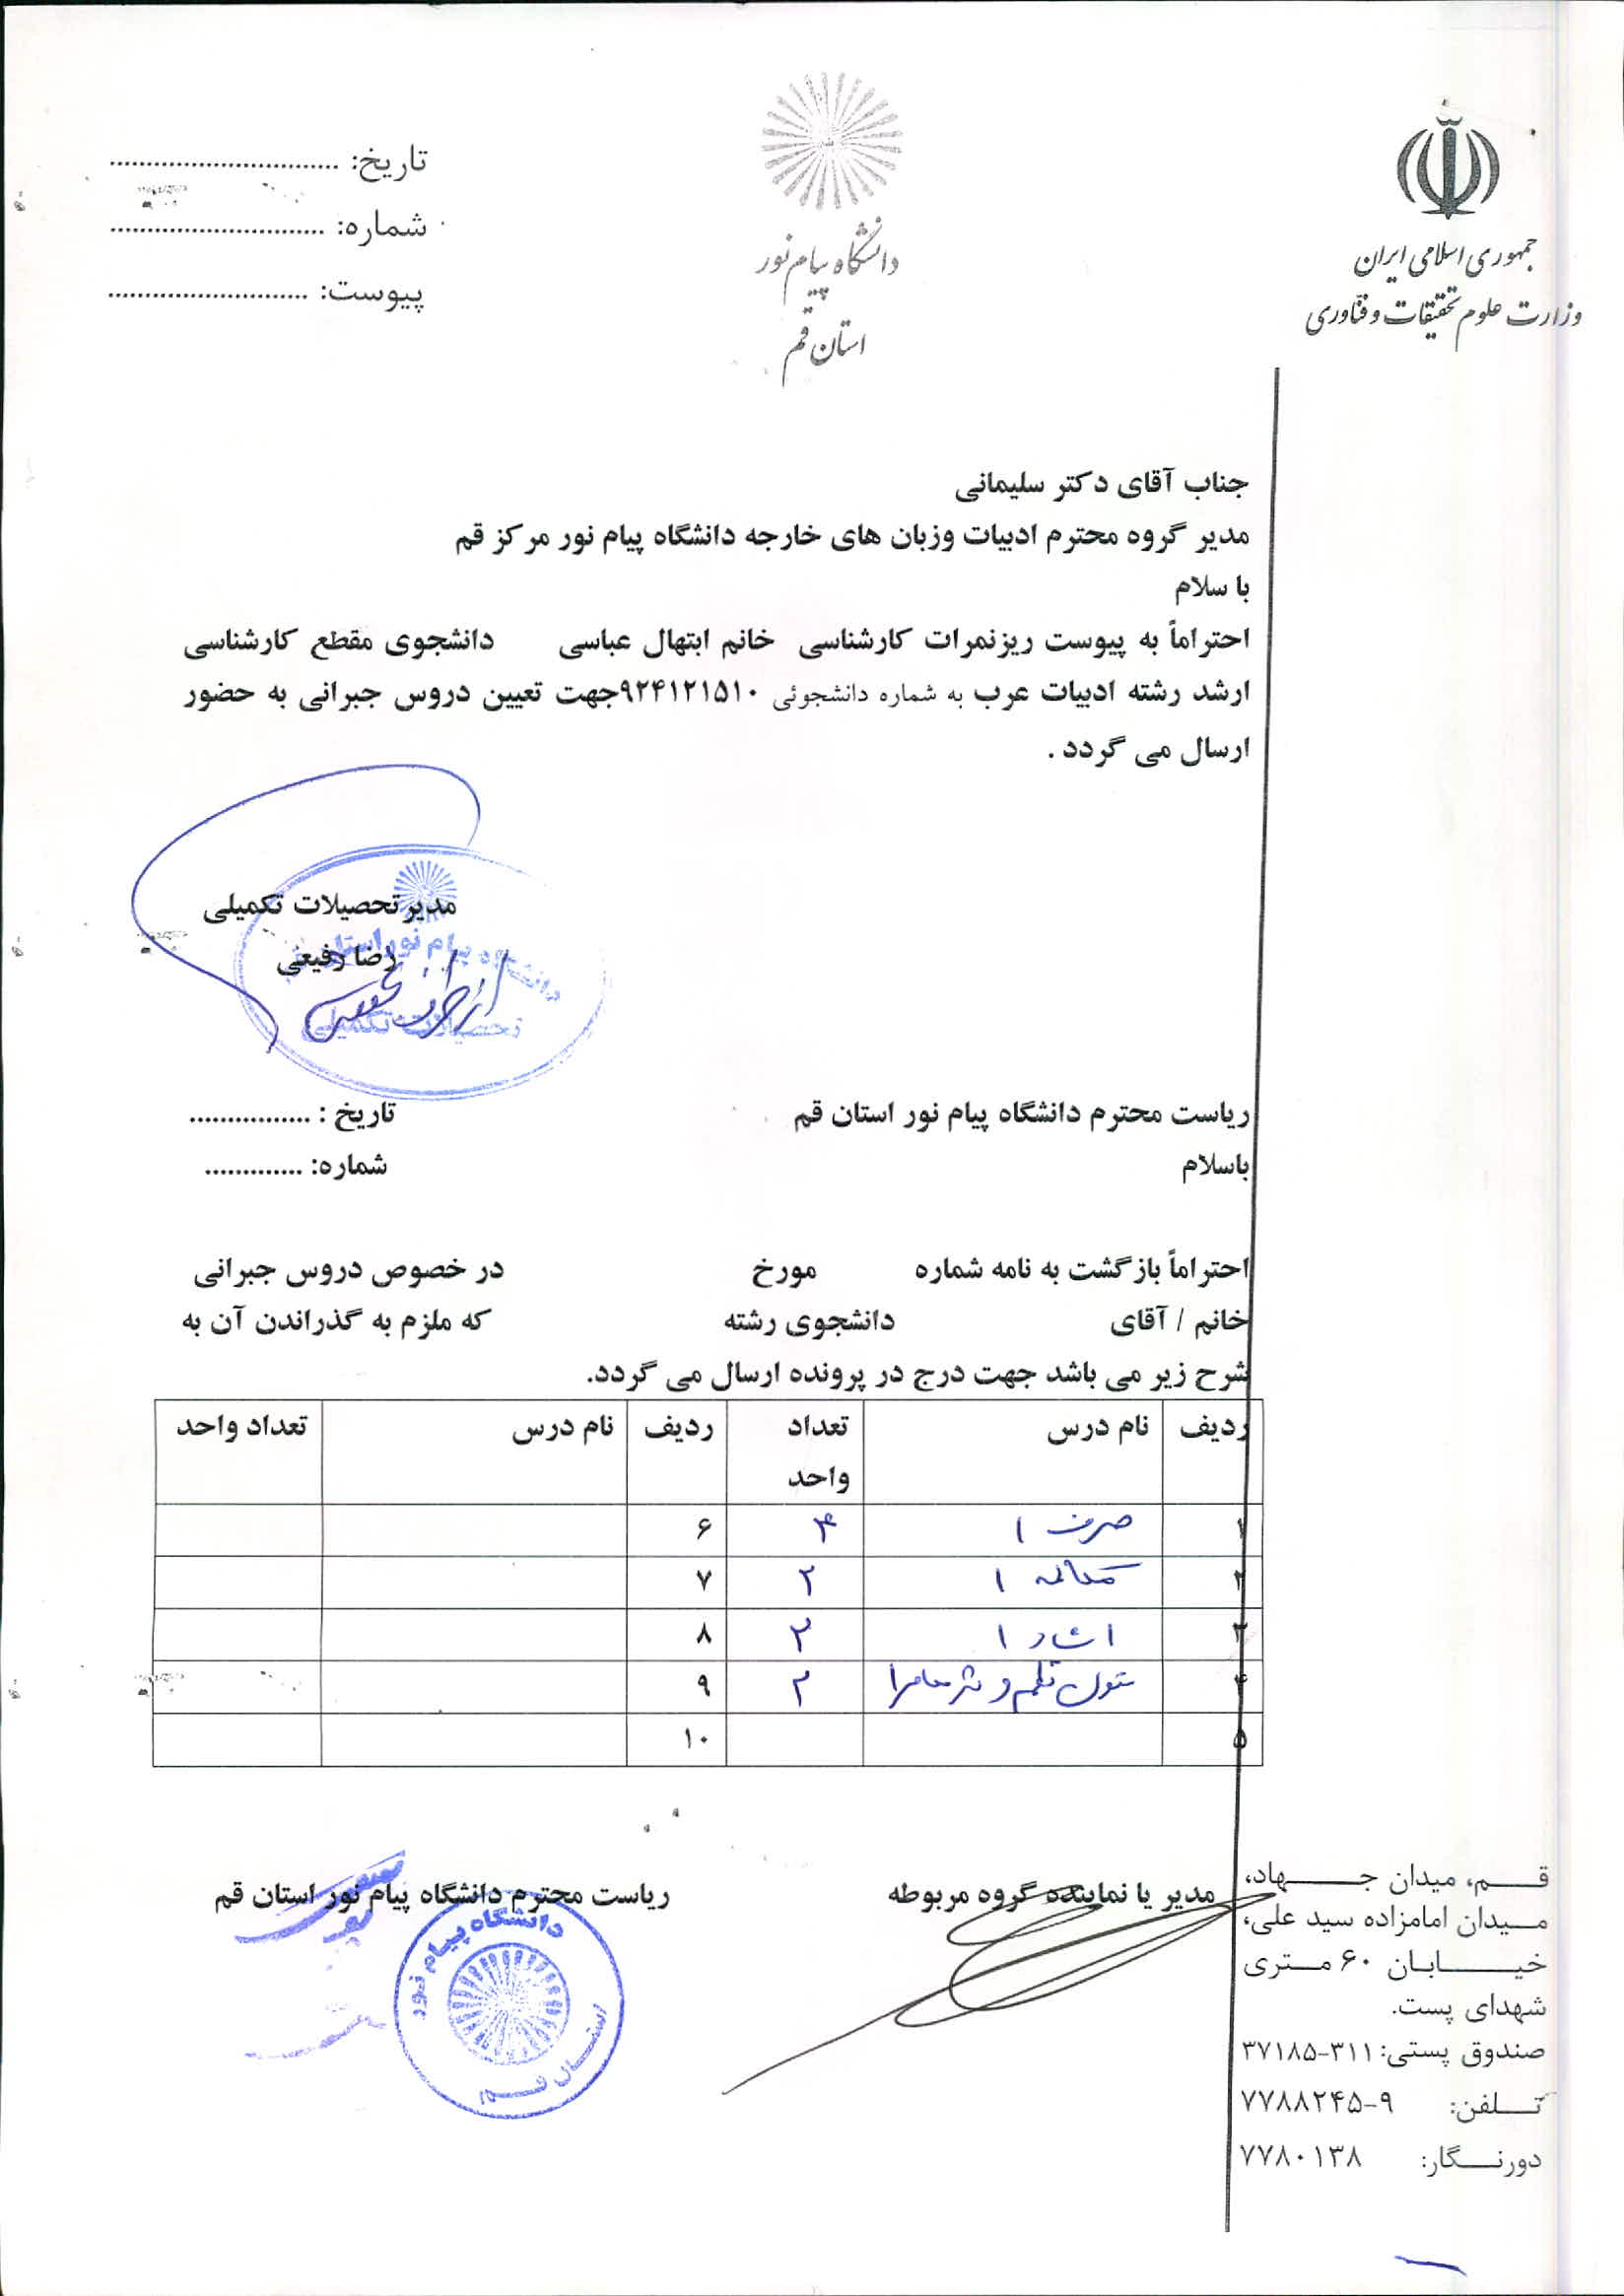 جمهوری اسلامی ایران
وزارت علوم تحقیقات و فناوری
دانشگاه پیام نور
استان قم
تاریخ: ..............................
شماره: ............................
پیوست: ..........................
جناب آقای دکتر سلیمانی
مدیر گروه محترم ادبیات وزبان های خارجه دانشگاه پیام نور مرکز قم
با سلام
احتراماً به پیوست ریزنمرات کارشناسی خانم ابتهال عباسی دانشجوی مقطع کارشناسی
ارشد رشته ادبیات عرب به شماره دانشجوئی ۹۲۴۱۲۱۵۱۰جهت تعیین دروس جبرانی به حضور
ارسال می گردد .
مدیر تحصیلات تکمیلی
رضا رفیعی
دانشگاه پیام نور استان قم
تحصیلات تکمیلی
ریاست محترم دانشگاه پیام نور استان قم تاریخ : ................
باسلام شماره: .............
احتراماً بازگشت به نامه شماره مورخ در خصوص دروس جبرانی
خانم / آقای دانشجوی رشته که ملزم به گذراندن آن به
شرح زیر می باشد جهت درج در پرونده ارسال می گردد.
ردیف نام درس تعداد واحد ردیف نام درس تعداد واحد
۱ صرف ۱ ۴ ۶
۲ مکالمه ۱ ۲ ۷
۳ انشاء ۱ ۲ ۸
۴ متون نظم و نثر معاصر۱ ۲ ۹
۵ ۱۰
مدیر یا نماینده گروه مربوطه ریاست محترم دانشگاه پیام نور استان قم
دانشگاه پیام نور
استان قم
قم، میدان جهاد،
میدان امامزاده سید علی،
خیابان ۶۰ متری
شهدای پست.
صندوق پستی: ۳۱۱-۳۷۱۸۵
تلفن: ۹-۷۷۸۸۲۴۵
دورنگار: ۷۷۸۰۱۳۸